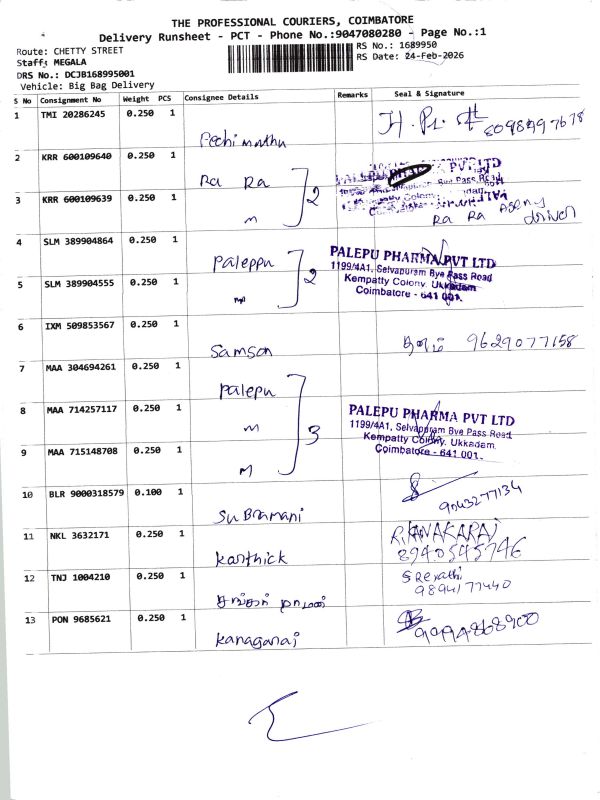 THE PROFESSIONAL COURIERS, COIMBATORE
Delivery Runsheet - PCT - Phone No.:9047080280 - Page No.:1
Route: CHETTY STREET
RS No.: 1689950
Staff: MEGALA
RS Date: 24-Feb-2026
DRS No.: DCJB168995001
Vehicle: Big Bag Delivery
S No Consignment No Weight PCS Consignee Details Remarks Seal & Signature
1 TMI 20286245 0.250 1
Pechimuthu
2 KRR 600109640 0.250 1
Ra Ra
2
3 KRR 600109639 0.250 1
Ra Ra
driver
4 SLM 389904864 0.250 1
Paleppu
2
PALEPU PHARMA PVT LTD
1199/4A1, Selvapuram Bye Pass Road
Kempatty Colony, Ukkadam
Coimbatore - 641 001.
5 SLM 389904555 0.250 1
6 IXM 509853567 0.250 1
Samson
9629077158
7 MAA 304694261 0.250 1
Palepu
8 MAA 714257117 0.250 1
3
PALEPU PHARMA PVT LTD
1199/4A1, Selvapuram Bye Pass Road
Kempatty Colony, Ukkadam
Coimbatore - 641 001.
9 MAA 715148708 0.250 1
10 BLR 9000318579 0.100 1
Subramani
9043277134
11 NKL 3632171 0.250 1
Karthick
R.KANAKARAJ
8940545746
12 TNJ 1004210 0.250 1
S Revathi
9894177440
13 PON 9685621 0.250 1
Kanagaraj